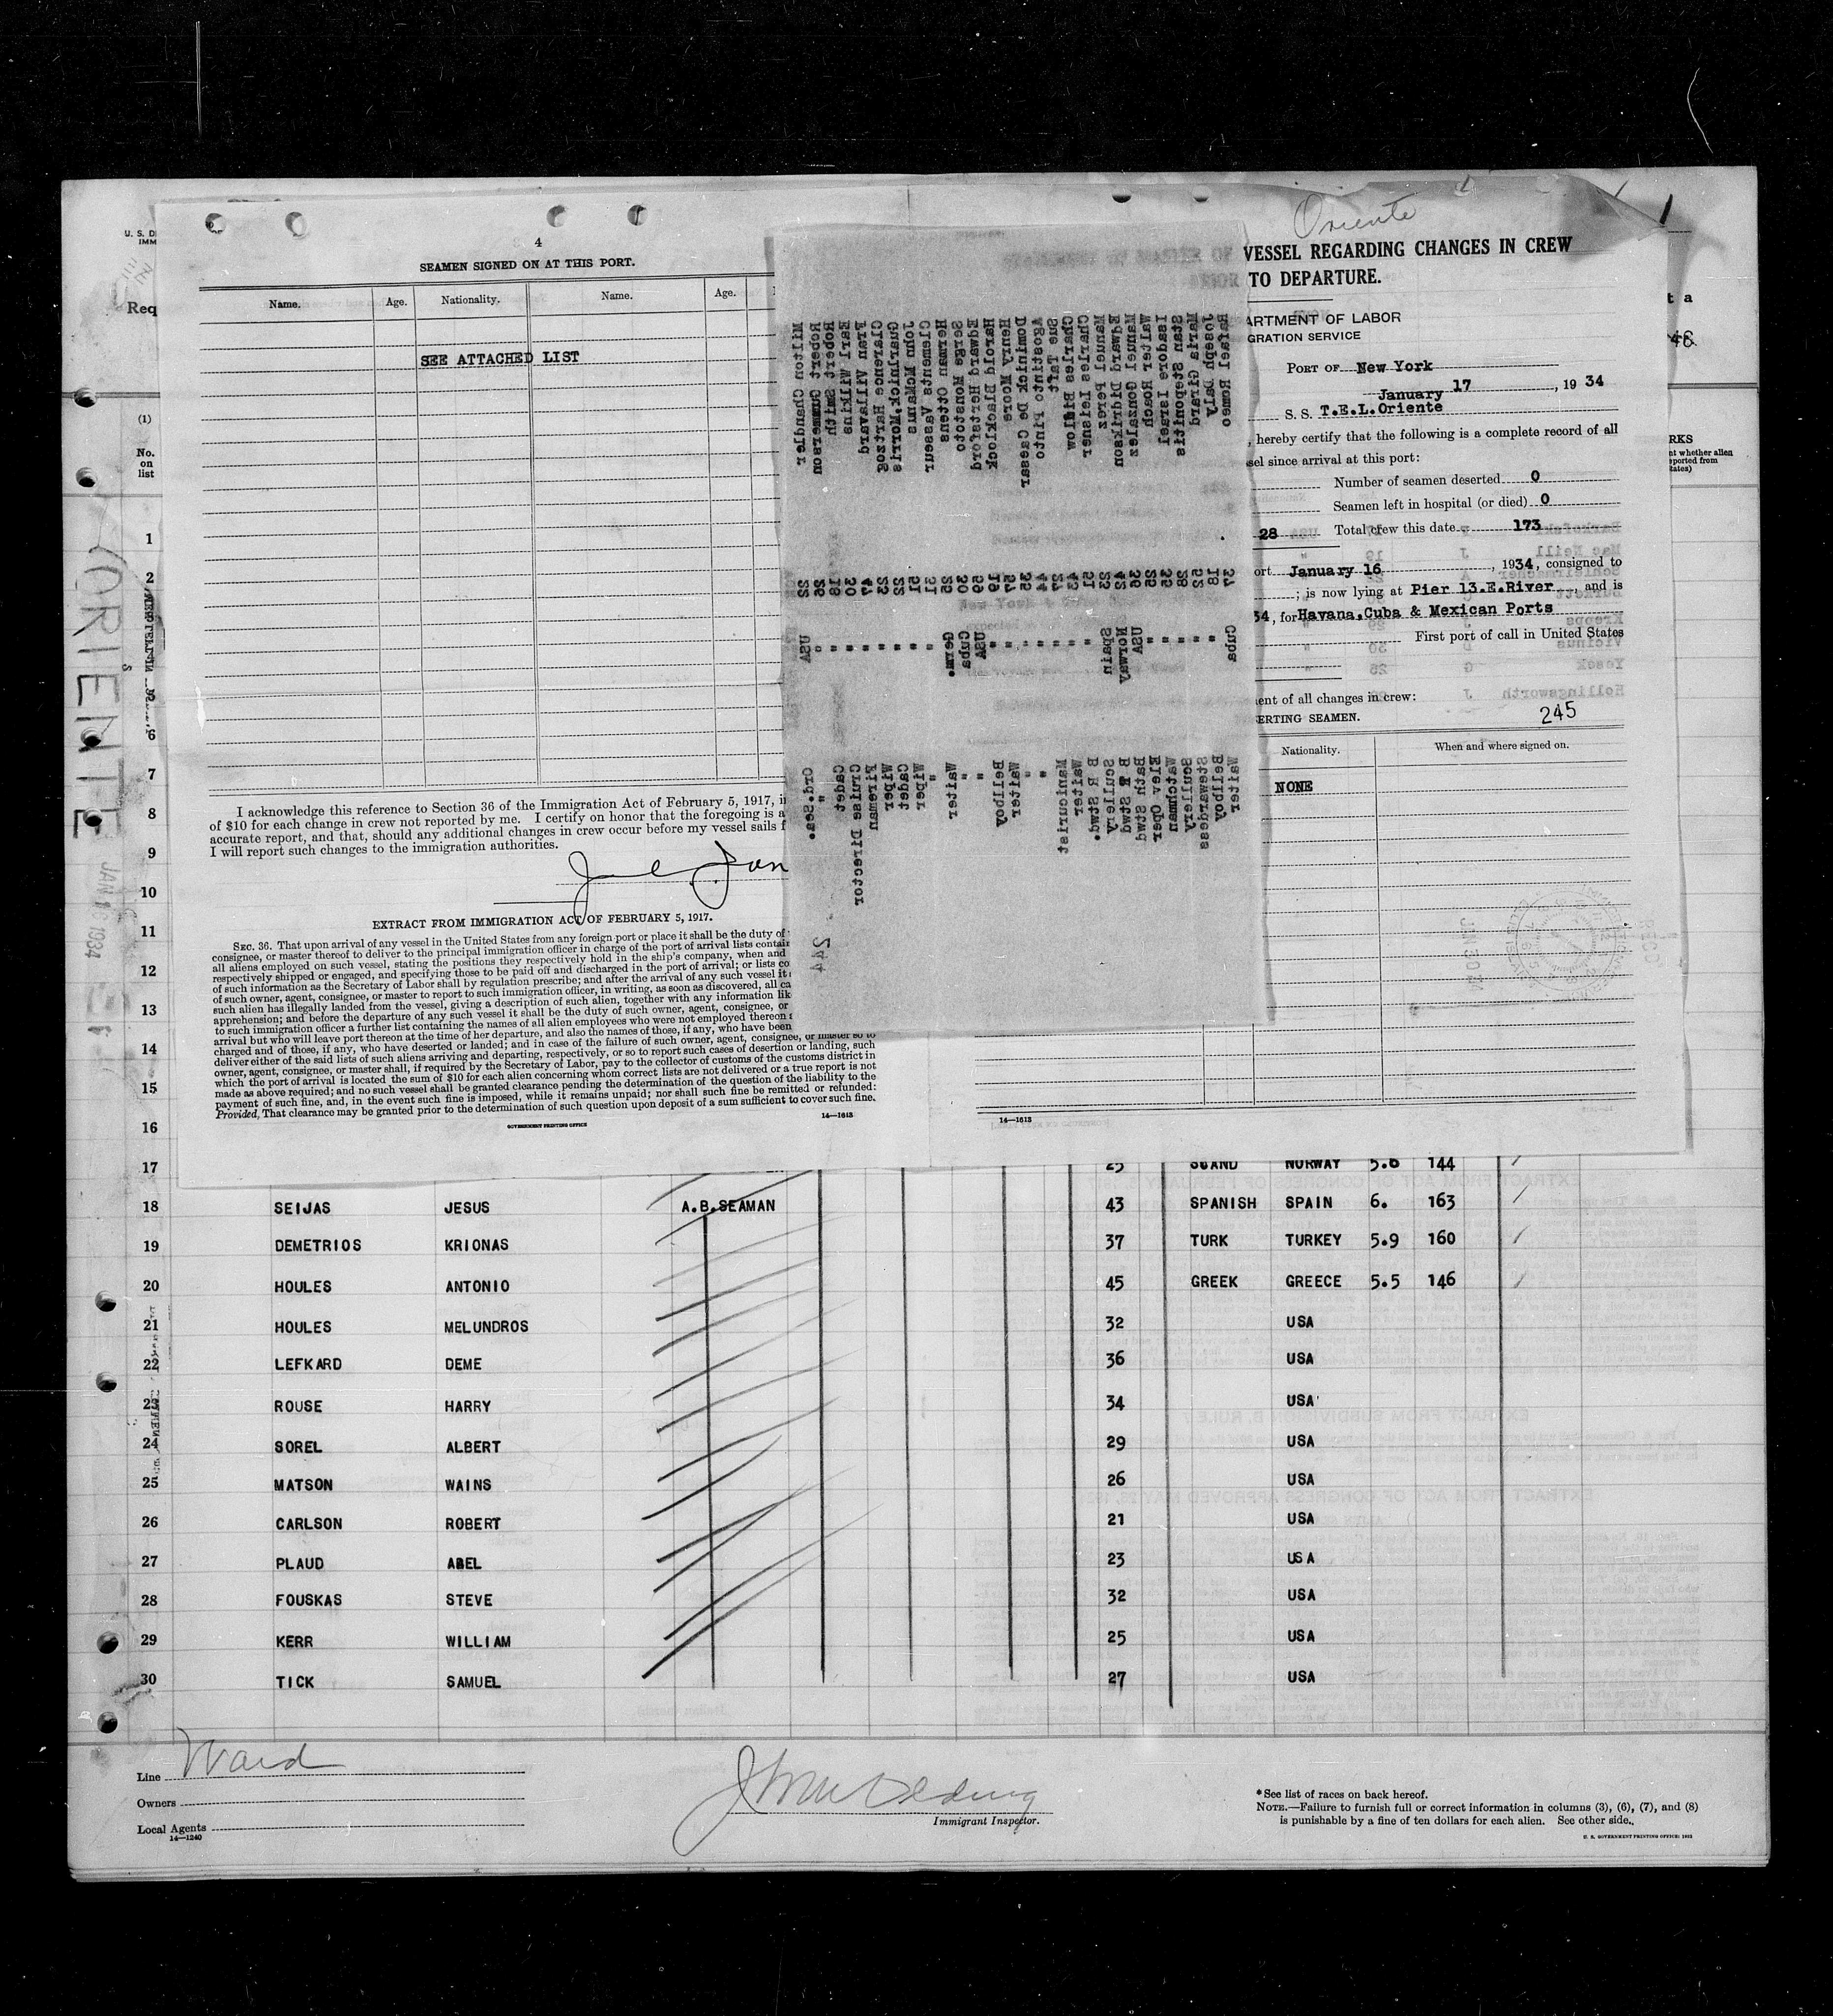 Oriente
U. S. D
IMM
Req
(1)
No.
on
list
4
SEAMEN SIGNED ON AT THIS PORT.
Name. Age. Nationality. Name. Age.
SEE ATTACHED LIST
I acknowledge this reference to Section 36 of the Immigration Act of February 5, 1917, i
of $10 for each change in crew not reported by me. I certify on honor that the foregoing is a
accurate report, and that, should any additional changes in crew occur before my vessel sails f
I will report such changes to the immigration authorities.
EXTRACT FROM IMMIGRATION ACT OF FEBRUARY 5, 1917.
SEC. 36. That upon arrival of any vessel in the United States from any foreign port or place it shall be the duty of
consignee, or master thereof to deliver to the principal immigration officer in charge of the port of arrival lists contai
all aliens employed on such vessel, stating the positions they respectively hold in the ship's company, when and
respectively shipped or engaged, and specifying those to be paid off and discharged in the port of arrival; or lists co
of such information as the Secretary of Labor shall by regulation prescribe; and after the arrival of any such vessel it
of such owner, agent, consignee, or master to report to such immigration officer, in writing, as soon as discovered, all ca
such alien has illegally landed from the vessel, giving a description of such alien, together with any information lik
apprehension; and before the departure of any such vessel it shall be the duty of such owner, agent, consignee, or
to such immigration officer a further list containing the names of all alien employees who were not employed thereon
arrival but who will leave port thereon at the time of her departure, and also the names of those, if any, who have been
charged and of those, if any, who have deserted or landed; and in case of the failure of such owner, agent, consignee, or master so to
deliver either of the said lists of such aliens arriving and departing, respectively, or so to report such cases of desertion or landing, such
owner, agent, consignee, or master shall, if required by the Secretary of Labor, pay to the collector of customs of the customs district in
which the port of arrival is located the sum of $10 for each alien concerning whom correct lists are not delivered or a true report is not
made as above required; and no such vessel shall be granted clearance pending the determination of the question of the liability to the
payment of such fine, and, in the event such fine is imposed, while it remains unpaid; nor shall such fine be remitted or refunded:
Provided, That clearance may be granted prior to the determination of such question upon deposit of a sum sufficient to cover such fine.
14—1613
GOVERNMENT PRINTING OFFICE
Rafael Romeo 37 Cuba Waiter
Joseph Daly 18 " Bellboy
Maria Girard 52 " Stewardess
Stan Stebonitis 28 " Scullery
Isadore Israel 35 " Watchman
Walter Roach 28 " Elev Oper
Manuel Gonzalez 36 USA Bath Stwd
Edward Didrikson 42 Norway B R Stwd
Manuel Perez 23 Spain Scullery
Charles Leisner 51 " B R Stwd.
Charles Biglow 43 " Waiter
Sue Tait 27 " Manicurist
Agostino Pinto 44 " "
Dominick De Caesar 35 " "
Henry Moore 57 " Waiter
Harold Blacklock 19 " Bellboy
Edward Hertsford 59 USA "
Serge Monstoto 30 Cuba "
Herman Ottens 25 Germ. Waiter
Clements Vasseur 31 " "
John McManus 51 " Wiper
Guarinick, Morris 22 " Cadet
Clarence Hartzog 23 " Wiper
Fran Villavard 47 " Fireman
Earl Wilkins 30 " Cruise Director
Robert Smith 18 " Cadet
Robert Gummerson 26 " "
Milton Chandler 22 USA Ord.Sea.
244
VESSEL REGARDING CHANGES IN CREW
TO DEPARTURE.
ARTMENT OF LABOR
GRATION SERVICE
PORT OF New York
January 17, 1934
S. S. T.E.L.Oriente
, hereby certify that the following is a complete record of all
sel since arrival at this port:
Number of seamen deserted 0
Seamen left in hospital (or died) 0
28 Total crew this date 173
ort January 16, 1934, consigned to
; is now lying at Pier 13.E.River, and is
34, for Havana,Cuba & Mexican Ports
First port of call in United States
ent of all changes in crew:
ERTING SEAMEN. 245
Nationality. When and where signed on.
NONE
14—1613
ORIENTE
JAN 16 1934
1
2
6
7
8
9
10
11
12
13
14
15
16
17 25 SCAND NORWAY 5.6 144
18 SEIJAS JESUS A.B.SEAMAN 43 SPANISH SPAIN 6. 163
19 DEMETRIOS KRIONAS 37 TURK TURKEY 5.9 160
20 HOULES ANTONIO 45 GREEK GREECE 5.5 146
21 HOULES MELUNDROS 32 USA
22 LEFKARD DEME 36 USA
23 ROUSE HARRY 34 USA
24 SOREL ALBERT 29 USA
25 MATSON WAINS 26 USA
26 CARLSON ROBERT 21 USA
27 PLAUD ABEL 23 USA
28 FOUSKAS STEVE 32 USA
29 KERR WILLIAM 25 USA
30 TICK SAMUEL 27 USA
Line Ward
Owners
Local Agents
14—1240
Immigrant Inspector.
*See list of races on back hereof.
NOTE.—Failure to furnish full or correct information in columns (3), (6), (7), and (8)
is punishable by a fine of ten dollars for each alien. See other side.
U. S. GOVERNMENT PRINTING OFFICE: 1932